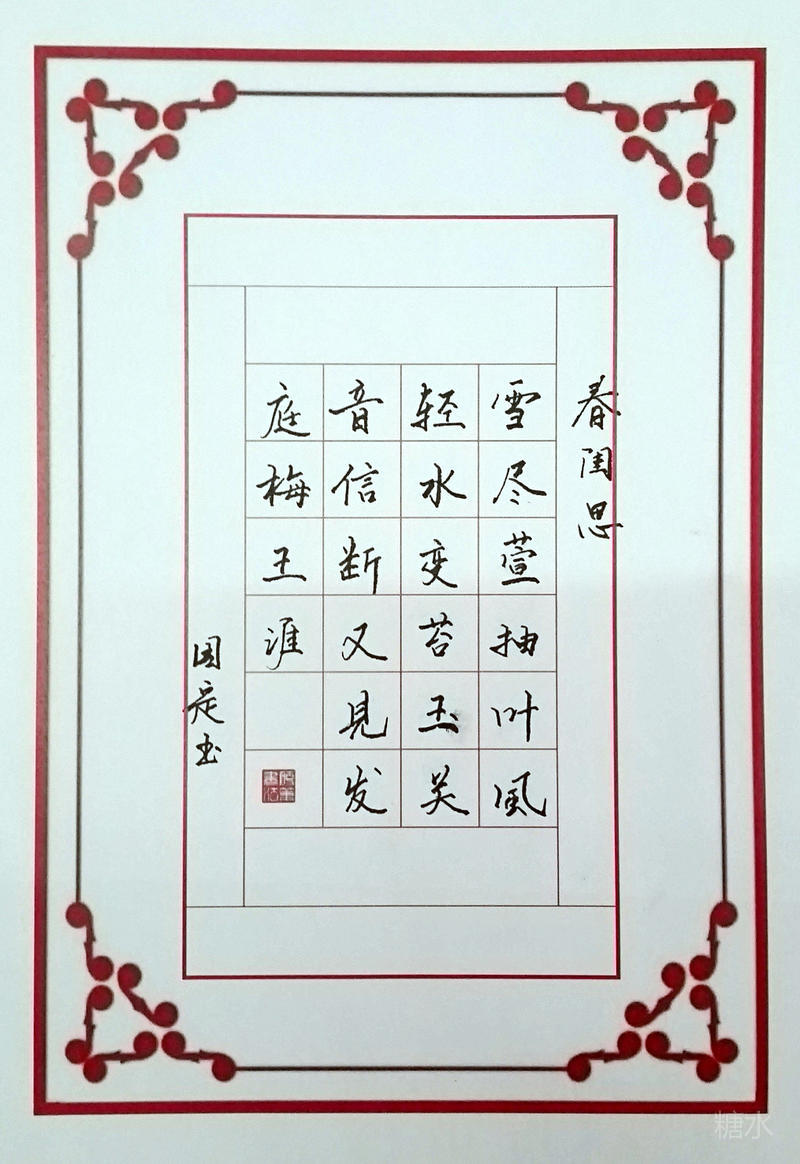 春闺思
雪尽萱抽叶风
轻水变苔玉关
音信断又见发
庭梅王涯
国定书
硬笔書法
糖水